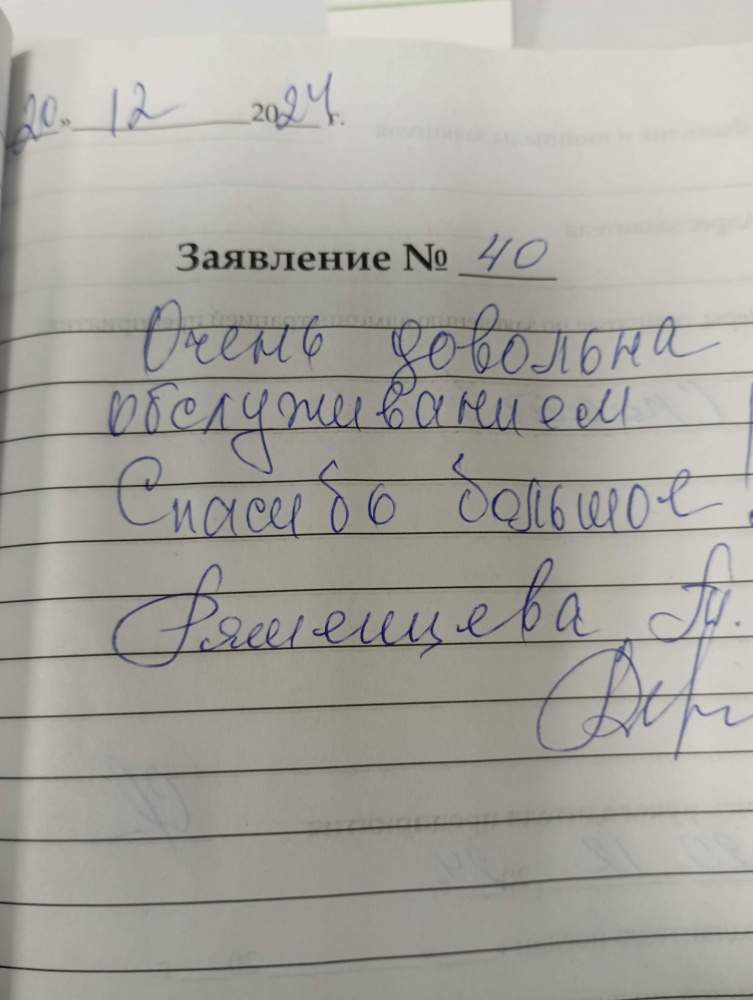 20» 12 2024 г.
Заявление № 40
Очень довольна
обслуживанием
Спасибо большое!